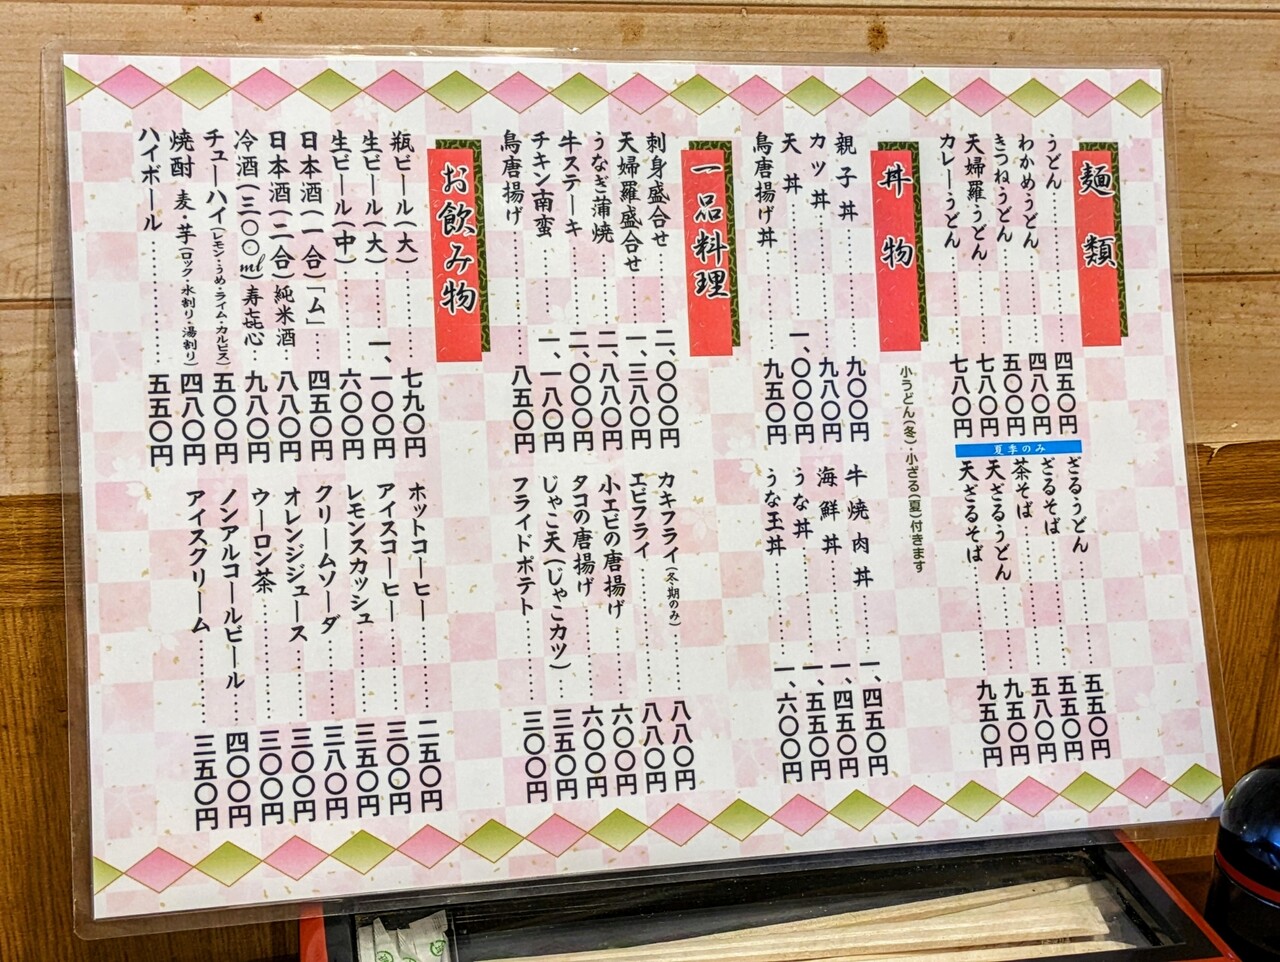 麺類
うどん 四五〇円
わかめうどん 四八〇円
きつねうどん 五〇〇円
天婦羅うどん 七八〇円
カレーうどん 七八〇円
夏季のみ
ざる・うどん 五五〇円
ざるそば 五五〇円
茶そば 五八〇円
天ざるうどん 九五〇円
天ざるそば 九五〇円
丼物
小うどん(冬)・小ざる(夏)付きます
親子丼 九〇〇円
カツ丼 九八〇円
天丼 一、〇〇〇円
鳥唐揚げ丼 九五〇円
牛焼肉丼 一、四五〇円
海鮮丼 一、四五〇円
うな丼 一、五五〇円
うな玉丼 一、六〇〇円
一品料理
刺身盛合せ 二、〇〇〇円
天婦羅盛合せ 一、三八〇円
うなぎ蒲焼 二、八八〇円
牛ステーキ 二、〇〇〇円
チキン南蛮 一、一八〇円
鳥唐揚げ 八五〇円
カキフライ(冬期のみ) 八八〇円
エビフライ 八八〇円
小エビの唐揚げ 六〇〇円
タコの唐揚げ 六〇〇円
じゃこ天(じゃこカツ) 三五〇円
フライドポテト 三〇〇円
お飲み物
瓶ビール(大) 七九〇円
生ビール(大) 一、一〇〇円
生ビール(中) 六〇〇円
日本酒(一合)「ム」 四五〇円
日本酒(二合)純米酒 八八〇円
冷酒(三〇〇ml)寿㐂心 九八〇円
チューハイ(レモン・うめ・ライム・カルピス) 五〇〇円
焼酎 麦・芋(ロック・水割り・湯割り) 四八〇円
ハイボール 五五〇円
ホットコーヒー 二五〇円
アイスコーヒー 三〇〇円
レモンスカッシュ 三五〇円
クリームソーダ 三八〇円
オレンジジュース 三〇〇円
ウーロン茶 三〇〇円
ノンアルコールビール 四〇〇円
アイスクリーム 三五〇円